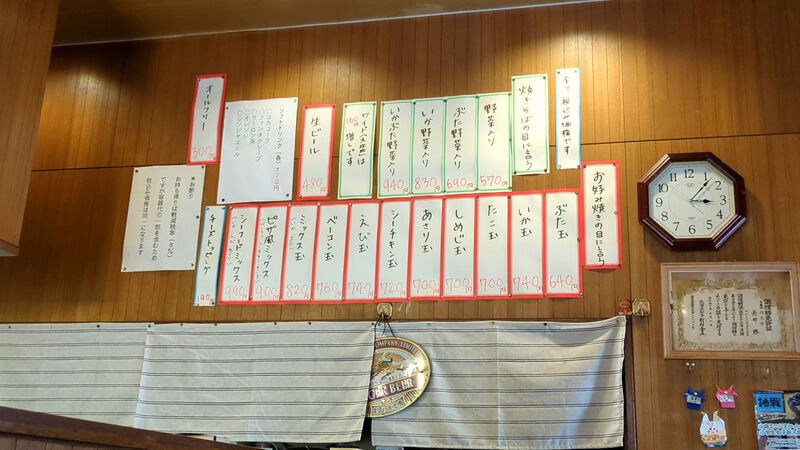 全て税込み価格です
焼きそばの目に言う
野菜入り
570円
ぶた野菜入り
690円
いか野菜入り
830円
いかぶた野菜入り
940円
ワイド(大盛)は
160円増しです
生ビール
480円
ソフトドリンク(各)170円
○コカコーラ
○ファンタグレープ
○ウーロン茶
○オレンジ
○ジンジャエール
オールフリー
300円
お好み焼きの目に言う
ぶた玉
640円
いか玉
740円
たこ玉
700円
しめじ玉
700円
あさり玉
700円
シーチキン玉
720円
えび玉
740円
ベーコン玉
760円
ミックス玉
820円
ピザ風ミックス
900円
シーフードミックス
990円
チーズトッピング
190円
※お断り
お持ち帰りは軽減税率(8%)
ですが容器代の一部を含むため
税込み価格は同一になります
調理師免許証
COMPANY, LIMITED
BEER
挑戦